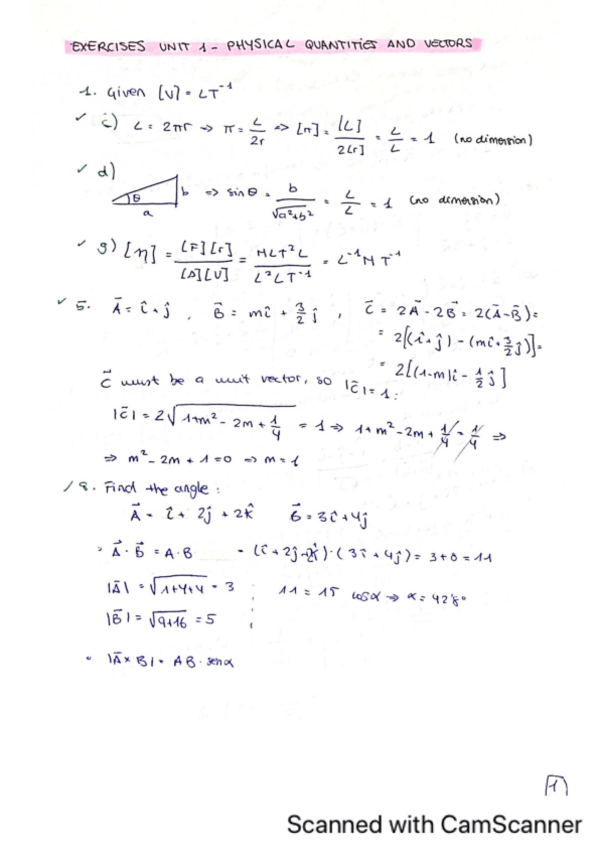 EXERCISES UNIT 1 - PHYSICAL QUANTITIES AND VECTORS
1. Given [V] = LT⁻¹
✓ c) L = 2πr ⇒ π = L/2r ⇒ [π] = [L]/2[r] = L/L = 1 (no dimension)
✓ d) θ a b ⇒ sin θ = b/√(a²+b²) = L/L = 1 (no dimension)
✓ g) [η] = [F][r]/[A][V] = MLT⁻²L/L²LT⁻¹ = L⁻¹MT⁻¹
✓ 5. A⃗ = î + ĵ , B⃗ = mî + 3/2 ĵ , C⃗ = 2A⃗ - 2B⃗ = 2(A⃗ - B⃗) =
= 2[(î + ĵ) - (mî + 3/2 ĵ)] =
= 2[(1-m)î - 1/2 ĵ]
C⃗ must be a unit vector, so |C⃗| = 1:
|C⃗| = 2√(1+m² - 2m + 1/4) = 1 ⇒ 1+m² - 2m + 1/4 = 1/4 ⇒
⇒ m² - 2m + 1 = 0 ⇒ m = 1
/ 8. Find the angle:
A⃗ = î + 2ĵ + 2k̂ B⃗ = 3î + 4ĵ
A⃗ · B⃗ = A · B = (î + 2ĵ + 2k̂) · (3î + 4ĵ) = 3 + 8 = 11
|A⃗| = √(1+4+4) = 3 11 = 15 cosα ⇒ α = 42'8°
|B⃗| = √(9+16) = 5
• |A⃗ × B| = AB · senα
1
Scanned with CamScanner